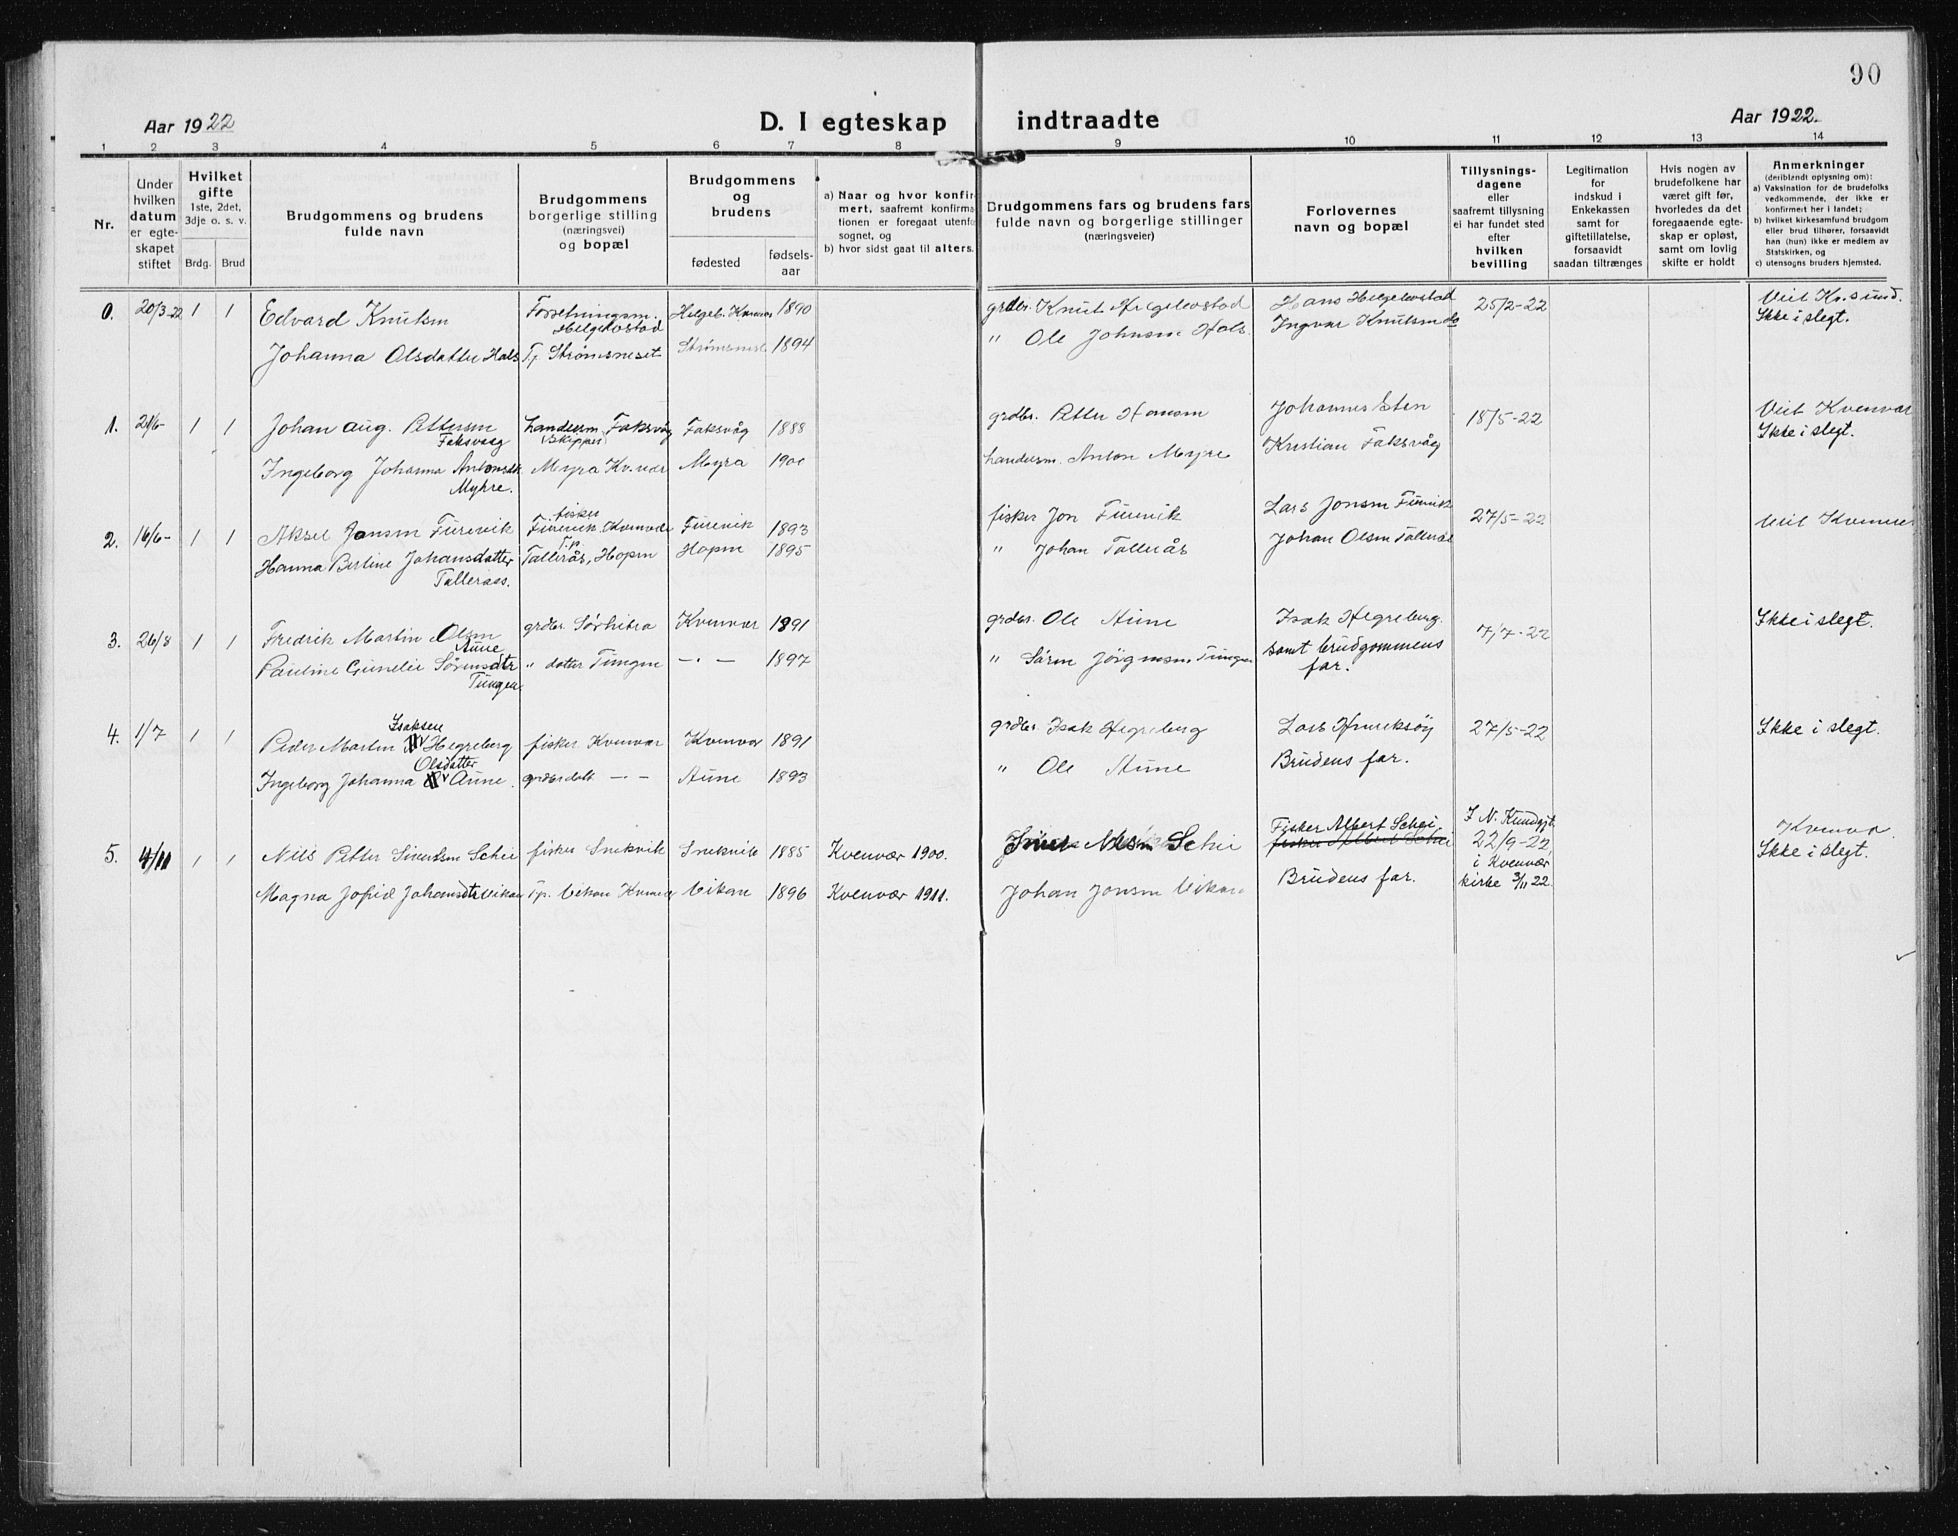 90
Aar 1922
D. I egteskap indtraadte
Aar 1922.
1 2 3 4 5 6 7 8 9 10 11 12 13 14
Nr.
Under hvilken datum er egteskapet stiftet
Hvilket gifte
1ste, 2det, 3dje o. s. v.
Brdg. Brud
Brudgommens og brudens fulde navn
Brudgommens borgerlige stilling (næringsvei) og bopæl
Brudgommens og brudens
fødested
fødsels-aar
a) Naar og hvor konfirmert, saafremt konfirmationen er foregaat utenfor sognet, og
b) hvor sidst gaat til alters.
Brudgommens fars og brudens fars fulde navn og borgerlige stillinger (næringsveier)
Forlovernes navn og bopæl
Tillysnings-dagene eller saafremt tillysning ei har fundet sted efter hvilken bevilling
Legitimation for indskud i Enkekassen samt for giftetillatelse, forsaavidt saadan tiltrænges
Hvis nogen av brudefolkene har været gift før, hvorledes da det foregaaende egteskap er opløst, samt om lovlig skifte er holdt
Anmerkninger (deriblandt oplysning om):
a) Vaksination for de brudefolks vedkommende, der ikke er konfirmert her i landet;
b) hvilket kirkesamfund brudgom eller brud tilhører, forsaavidt han (hun) ikke er medlem av Statskirken, og
c) utensogns bruders hjemsted.
0. 20/3-22 1 1 Edvard Knutsen Forretningsm. Helgebostad Helgeb. Kvenvær 1890 grdbr. Knut Helgebostad Hans Helgebostad 25/2-22 Viet Kr.sund.
Ingvar Knutsen do Ikke i slegt.
Johanna Olsdatter Hals Tj. Strømsneset Strømsnes 1894 " Ole Johnsen Hals.
1. 21/6- 1 1 Johan Aug. Pettersen Faksvaag Handelsm. Faksvåg (Skipper) Faksvåg 1888 grdbr. Petter Hansen Johannes Sten 18/5-22 Viet Kvenvær
Ikke i slegt.
Ingeborg Johanna Antonsdtr Myhre. Myra Kv.vær Myra 1900 Handelsm. Anton Myhre Kristian Faksvåg
2. 16/6- 1 1 Aksel Jonsen Furevik fisker Furevik, Kvenvær Furevik 1893 fisker Jon Furevik Lars Jonsen Furevik 27/5-22 Viet Kvenvær
Hanna Bertine Johansdatter Talleraas. Tj. Tallerås, Hopen Hopen 1895 " Johan Tallerås Johan Olsen Tallerås
3. 26/8 1 1 Fredrik Martin Olsen Aune grdbr. Sørhitra Kvenvær 1891 grdbr. Ole Aune Isak Hegreberg 7/7-22 Ikke i slegt.
Pauline Gunelie Sørensdtr Tungen. " datter Tungen - " - 1897 " Søren Jörgensen Tungen samt brudgommens far.
4. 1/7 1 1 Peder Martin Isaksen Hegreberg fisker Kvenvær Kvenvær 1891 grdbr. Isak Hegreberg Lars Henriksøy 27/5-22 Ikke i slegt.
Ingeborg Johanna Olsdatter Aune. grdbrdatt - " - Aune 1893 " Ole Aune Brudens far.
5. 4/11 1 1 Nils Petter Sivertsen Schei fisker Snekvik Snekvik 1885 Kvenvær 1900. Nilsen Schei Fisker Albert Schei 22/9-22 Kvenvær
fisker Albert Schei i Kvenvær kirke 3/11 22. Ikke i slegt.
Magna Jofrid Johansdtr Vikan Tj. Vikan Kvenvær Vikan 1896 Kvenvær 1911. Johan Jonsen Vikan Brudens far.